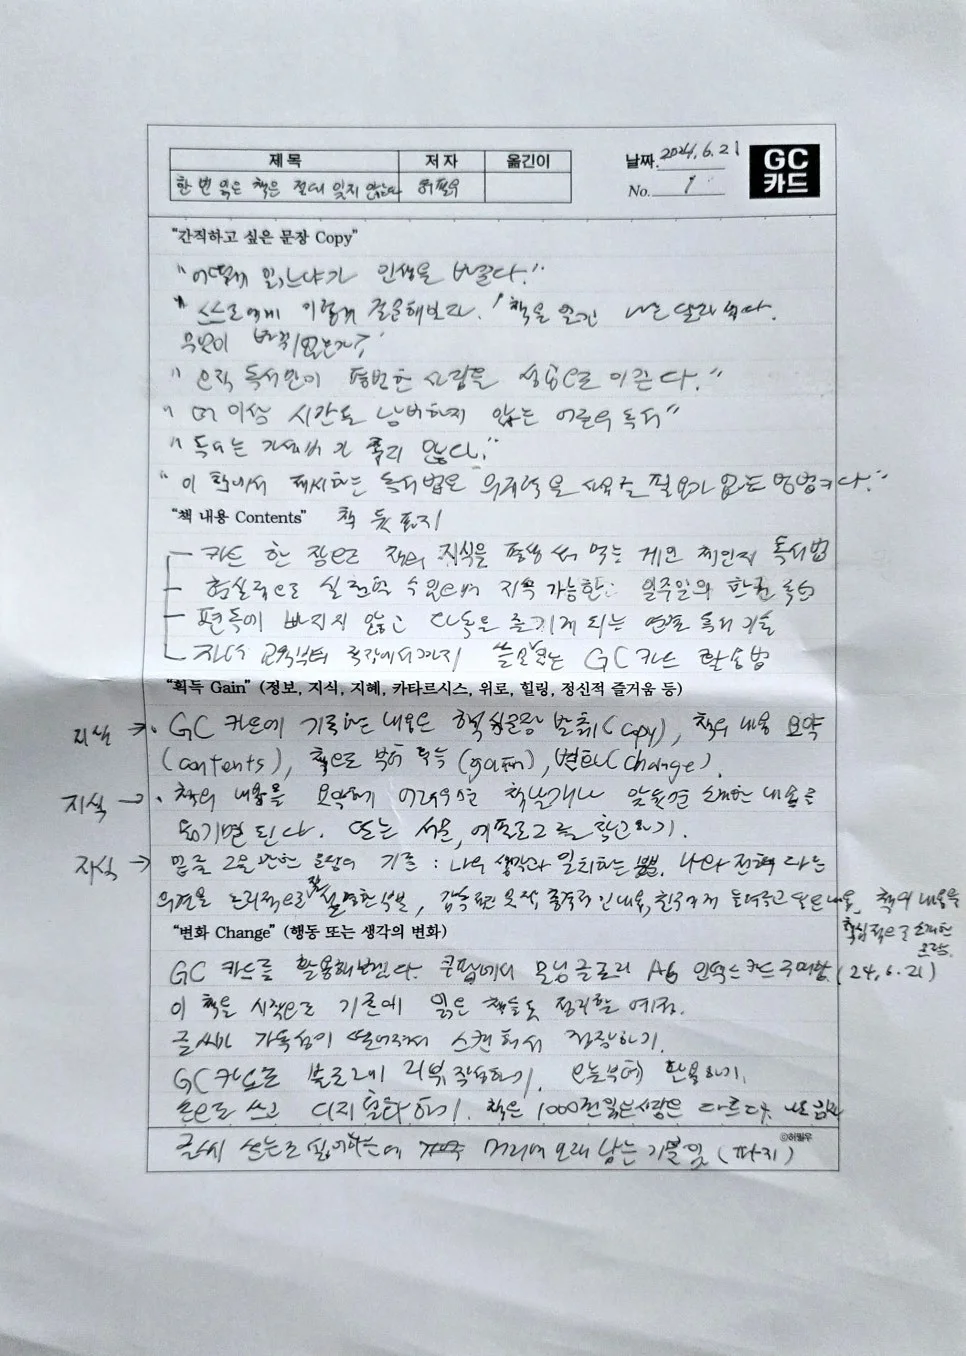 제 목 저 자 옮긴이
날짜. 2024. 6. 21
GC
카드
한 번 읽은 책은 절대 잊지 않는다 허필우
No. 1
"간직하고 싶은 문장 Copy"
"어떻게 읽느냐가 인생을 바꾼다."
"스스로에게 이렇게 질문해보라. '책을 읽긴 나는 달라졌다.
무엇이 바뀌었는가?'
"오직 독서만이 평범한 사람을 성공으로 이끈다."
"더 이상 시간도 낭비하지 않는 어른의 독서"
"독서는 가성비가 좋지 않다."
"이 책에서 제시하는 독서법은 의지력을 시험할 필요가 없는 방법이다."
"책 내용 Contents" 책 뒷표지
카드 한 장으로 책의 지식을 평생 써 먹는 개인 체인지 독서법
현실적으로 실천할 수 있으며 지속 가능한 일주일의 한권 독서
편독에 빠지지 않고 다독을 즐기게 되는 연결 독서 기술
자녀 교육부터 직장에서까지 쓸모있는 GC 카드 활용법
"획득 Gain" (정보, 지식, 지혜, 카타르시스, 위로, 힐링, 정신적 즐거움 등)
지식 → · GC 카드에 기록하는 내용은 핵심문장 발췌(copy), 책의 내용 요약
(contents), 책으로 부터 획득(gain), 변화(change).
지식 → · 책의 내용을 요약하기 어려우면 책날개나 앞뒷면 소개한 내용을
옮기면 된다. 또는 서문, 에필로그를 참고하기.
지식 → 밑줄 그을 만한 문장의 기준 : 나의 생각과 일치하는 나와 전혀 다른
의견을 논리적으로 잘 설명한 부분, 감동적인 내용, 책의 내용을
핵심적으로 소개한
문장.
"변화 Change" (행동 또는 생각의 변화)
GC 카드를 활용해보겠다. 쿠팡에서 모닝글로리 A6 인덱스카드 구매함. (24. 6. 21)
이 책을 시작으로 기존에 읽은 책들도 정리할 예정.
글씨가 가독성이 떨어져서 스캔해서 저장하기.
GC 카드로 블로그에 리뷰 작성하기. 오늘부터 활용하기.
손으로 쓰고 디지털화하기. 책은 1000권 읽은 사람은 다르다.
©허필우
글씨 쓰는 머리에 오래 남는 기분임